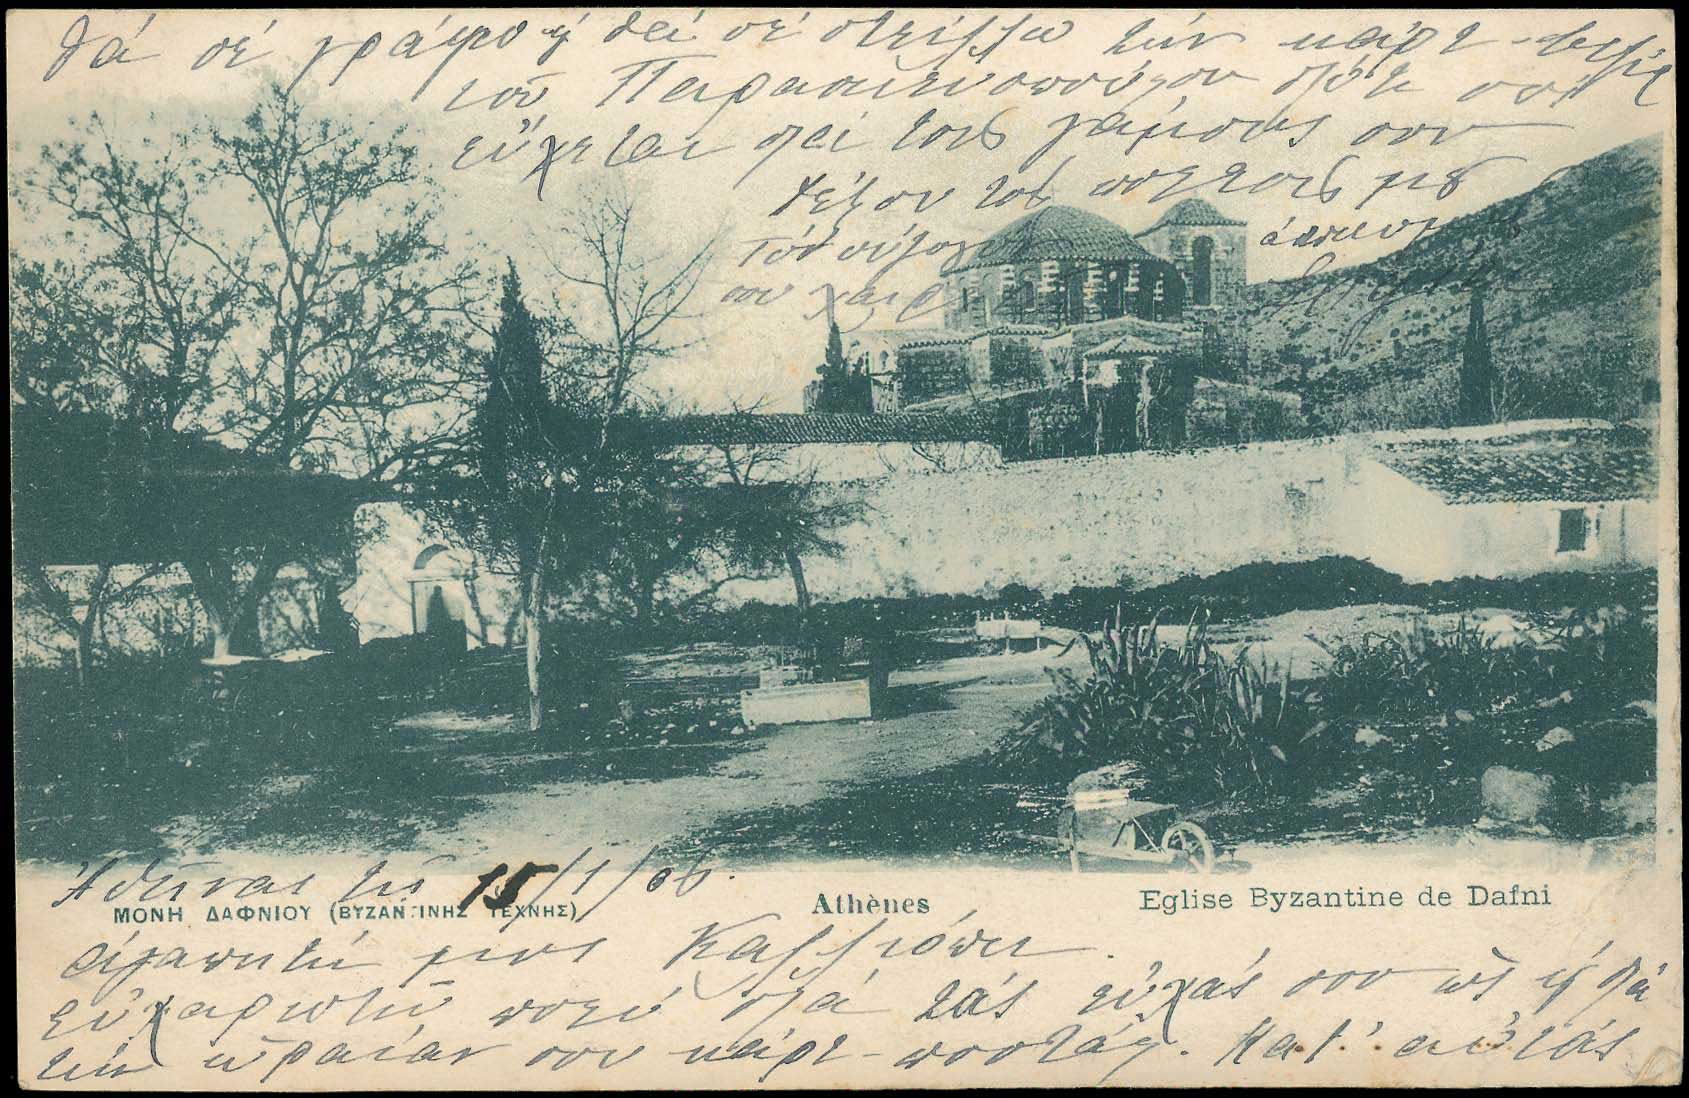 θά σέ γράψω ἤ θά σέ στείλλω τήν κάρτ-
τοῦ Παρασκευοπούλου
εὔχεται διά τούς γάμους σου
τούς μου
Τόν σύζυγον
σου χαιρ
Ἀθῆναι τῇ 15/1/06.
ΜΟΝΗ ΔΑΦΝΙΟΥ (ΒΥΖΑΝΤΙΝΗΣ ΤΕΧΝΗΣ)
Athènes
Eglise Byzantine de Dafni
Ἀγαπητή μου Καλλιόπη.
Εὐχαριστῶ πολύ διά τάς εὐχάς σου ὡς ἤ διά
τήν ὡραίαν σου κάρτ-ποστάλ. Κατ' αὐτάς